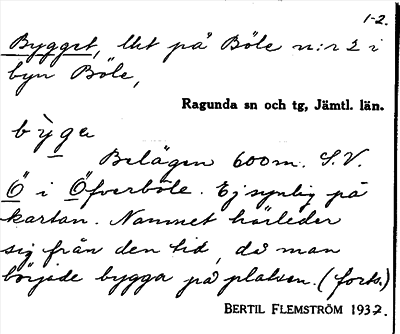 1-2.
Bygget, llet på Böle n:r 2 i
byn Böle,
Ragunda sn och tg, Jämtl. län.
by̆ge
Belägen 600 m. S.V.
Ö i Öfverböle. Ej synlig på
kartan. Namnet härleder
sig från den tid, då man
började bygga på platsen. (forts.)
BERTIL FLEMSTRÖM 1932.